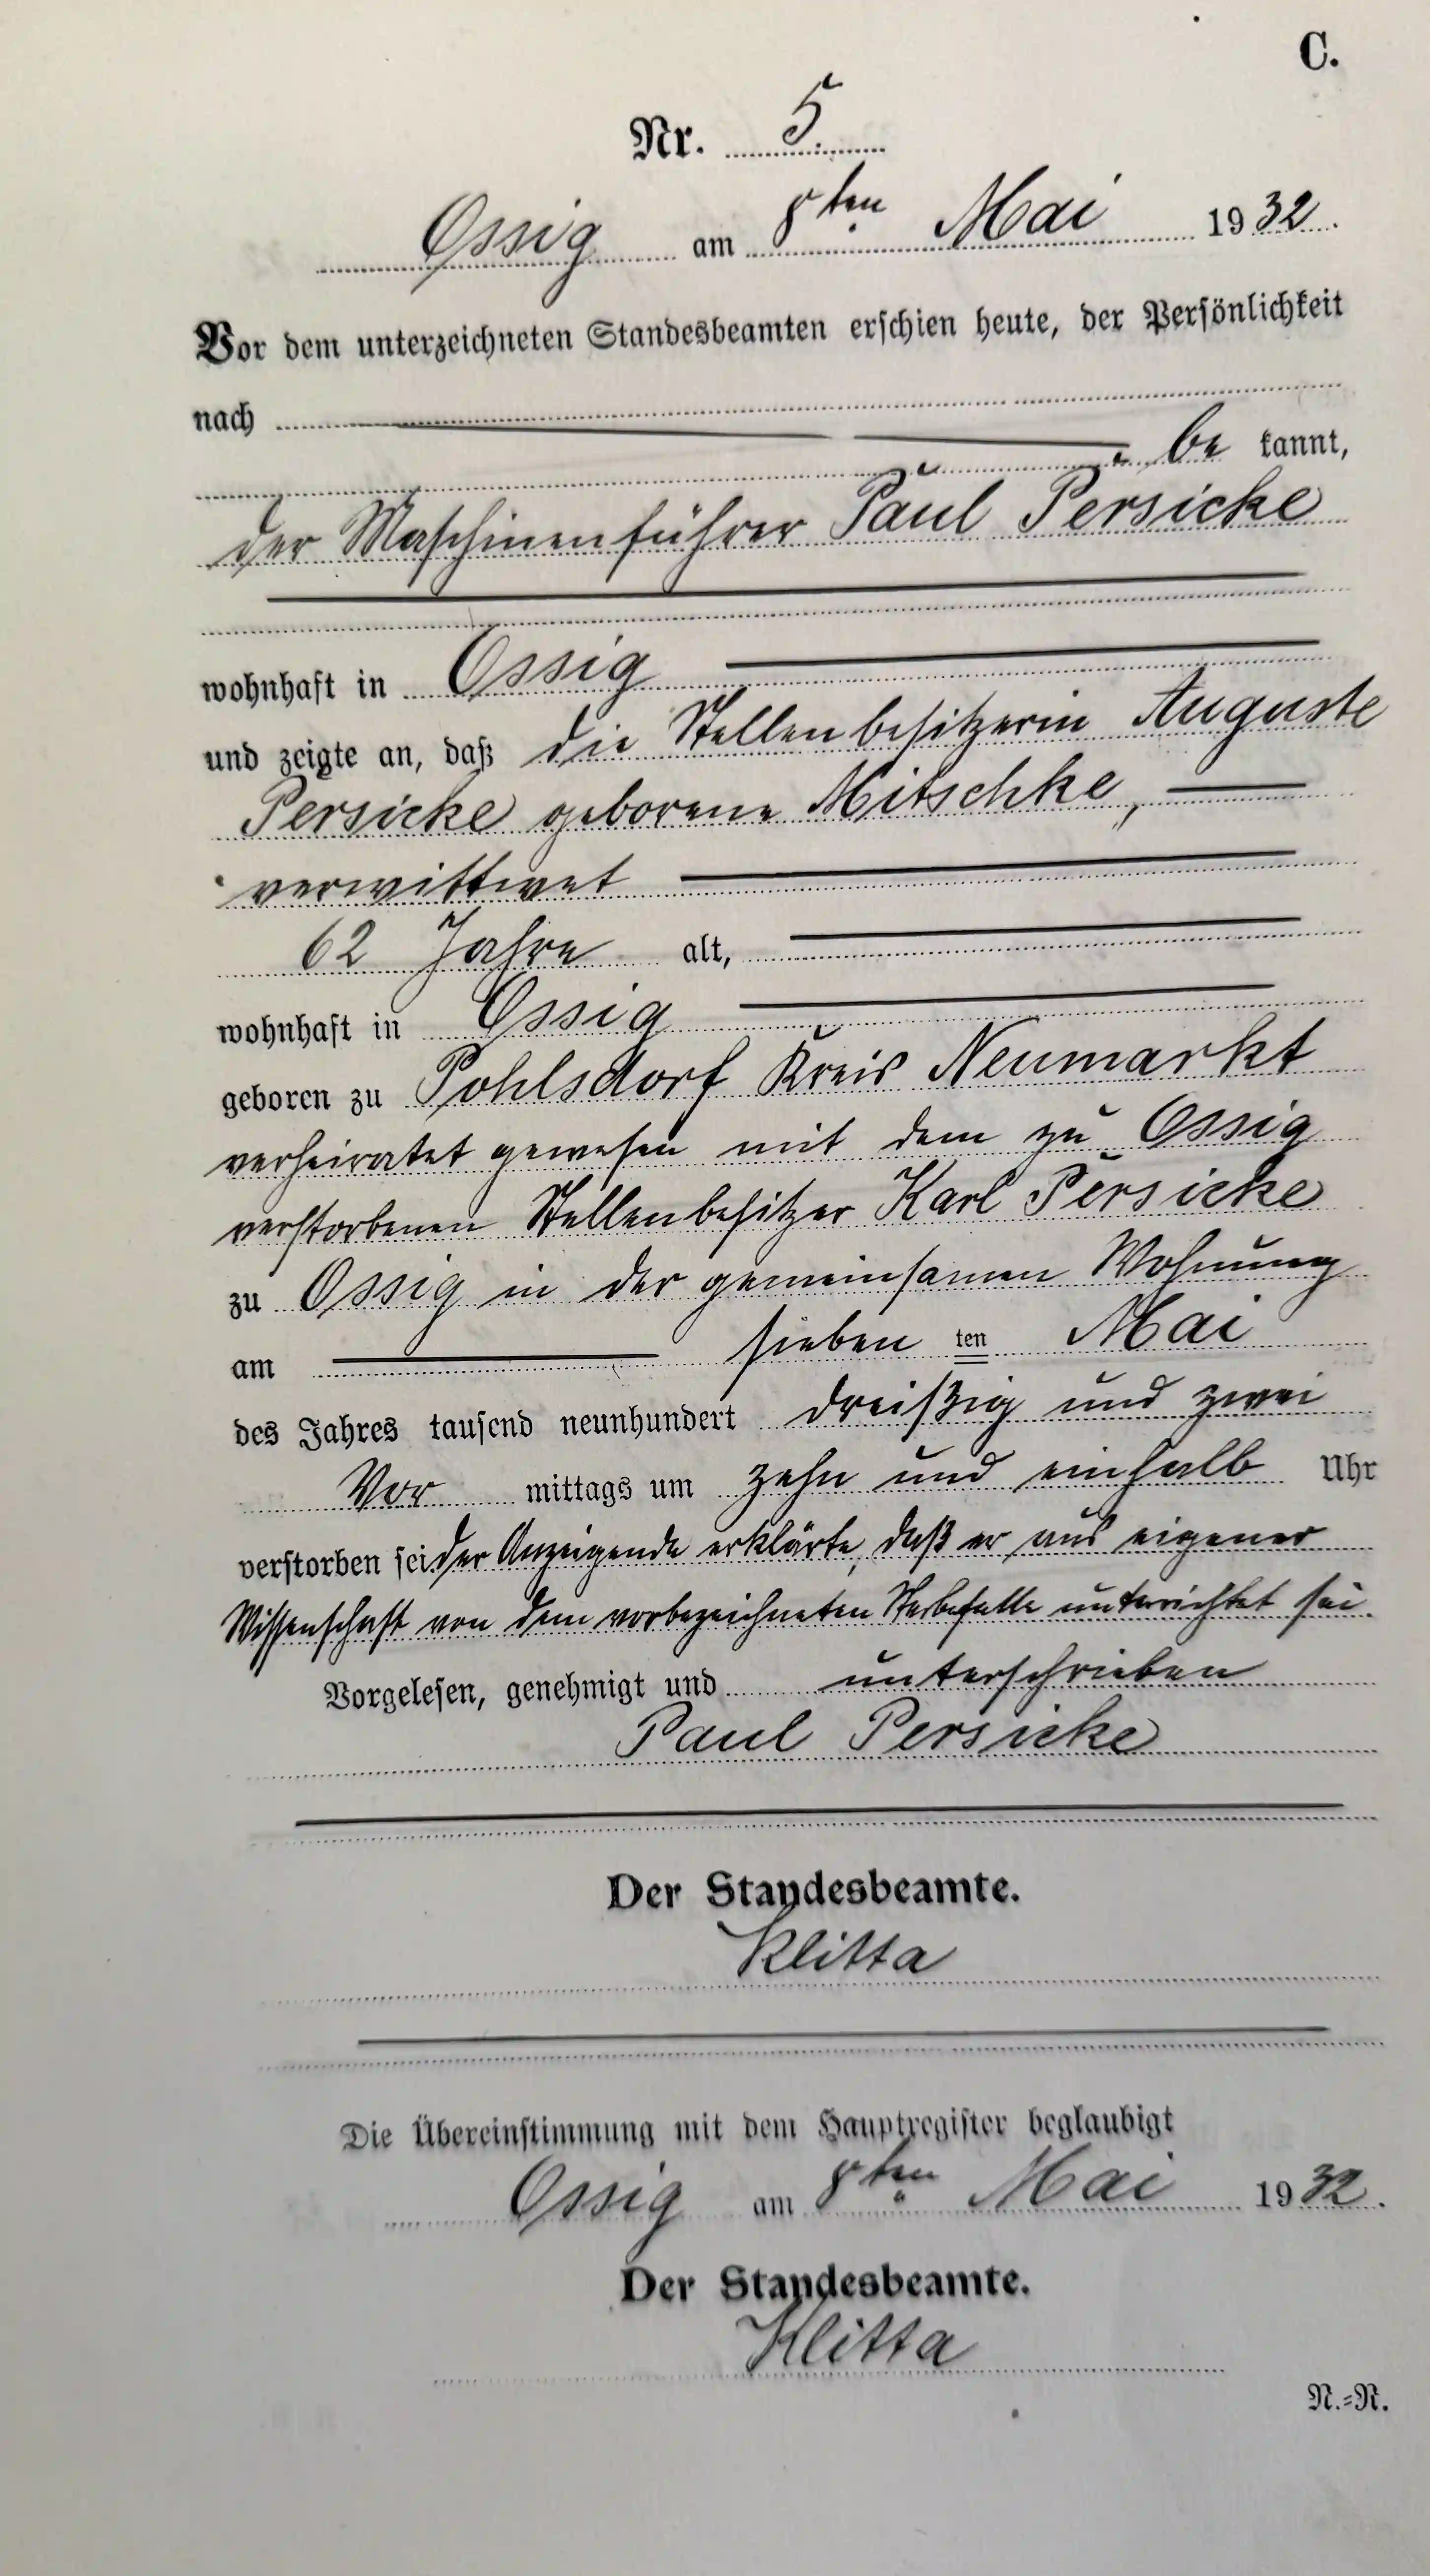 C.
Nr. 5.
Ossig am 8ten Mai 1932.
Vor dem unterzeichneten Standesbeamten erschien heute, der Persönlichkeit
nach
be kannt,
der Maschinenführer Paul Persicke
wohnhaft in Ossig
und zeigte an, daß die Stellenbesitzerin Auguste
Persicke geborene Mitschke,
verwittwet
62 Jahre alt,
wohnhaft in Ossig
geboren zu Pohlsdorf Kreis Neumarkt
verheiratet gewesen mit dem zu Ossig
verstorbenen Stellenbesitzer Karl Persicke
zu Ossig in der gemeinsamen Wohnung
am sieben ten Mai
des Jahres tausend neunhundert dreißig und zwei
Vor mittags um zehn und einhalb Uhr
verstorben sei. der Anzeigende erklärte, daß er aus eigener
Wissenschaft von dem vorbezeichneten Sterbefalle unterrichtet sei.
Vorgelesen, genehmigt und unterschrieben
Paul Persicke
Der Standesbeamte.
Klitta
Die Übereinstimmung mit dem Hauptregister beglaubigt
Ossig am 8ten Mai 1932.
Der Standesbeamte.
Klitta
N.=N.